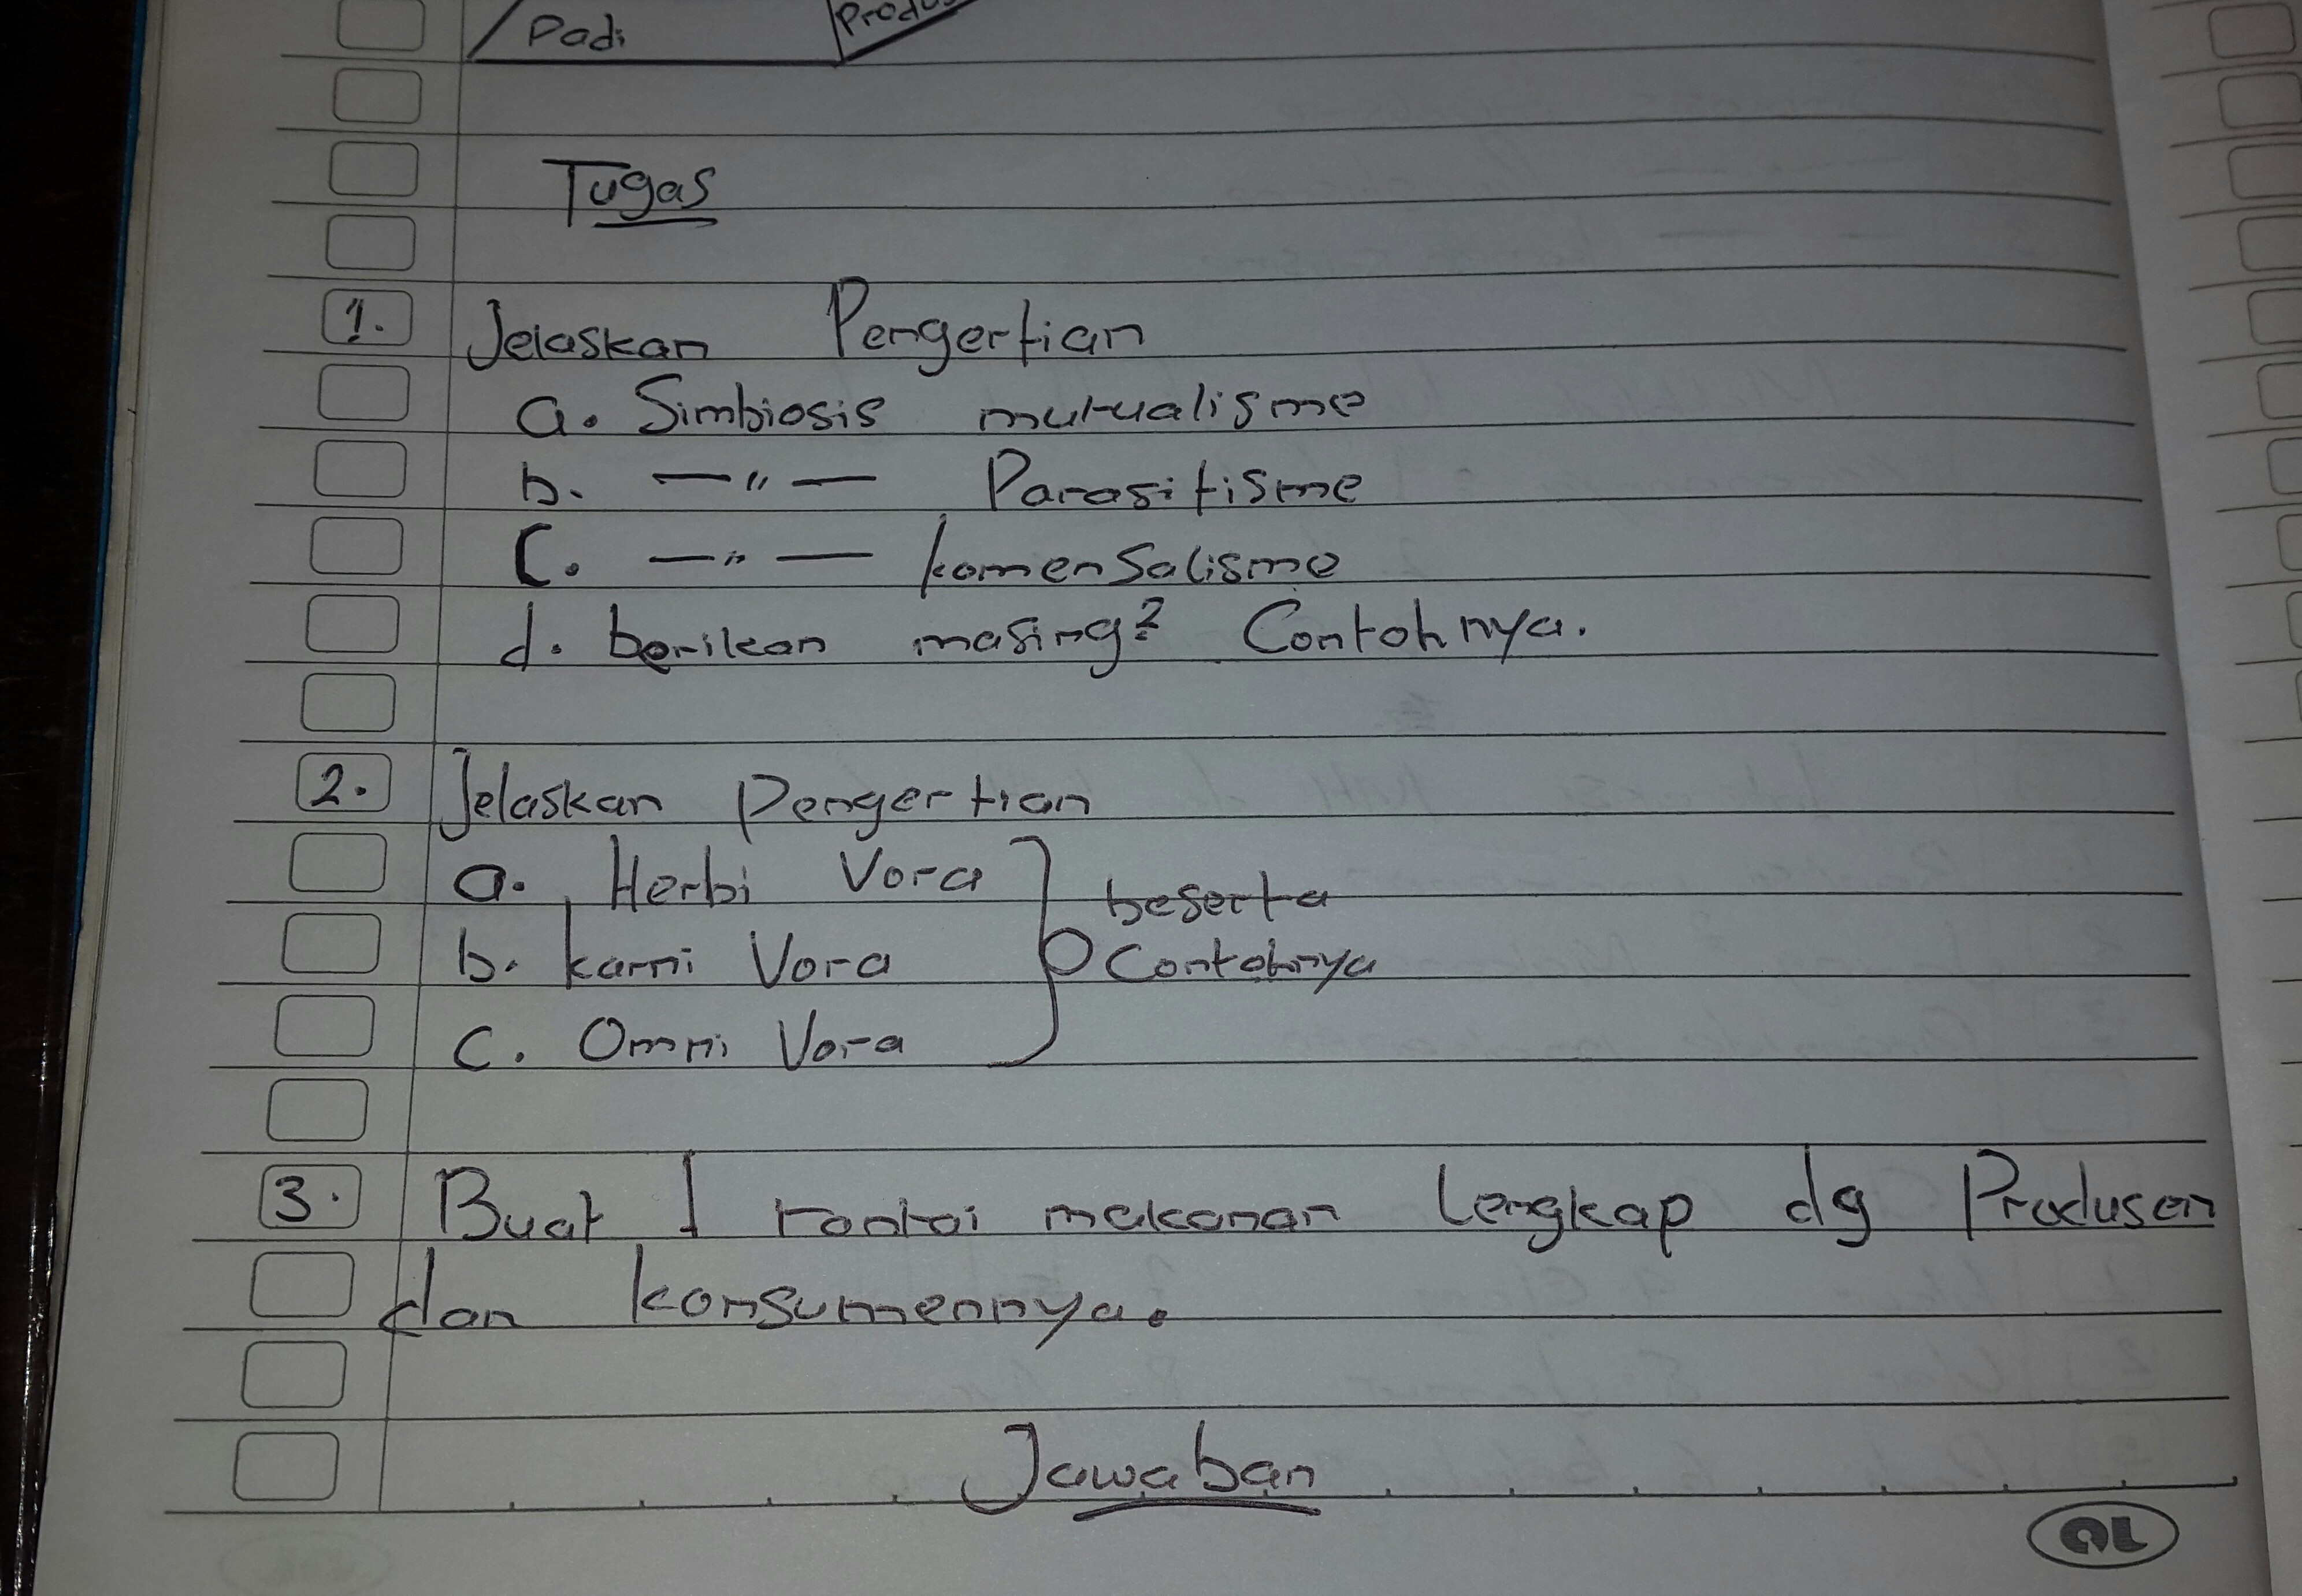 Padi
Tugas
1. Jelaskan Pengertian
a. Simbiosis mutualisme
b. —〃— Parasitisme
C. —〃— komensalisme
d. berikan masing² Contohnya.
2. Jelaskan Pengertian
a. Herbi Vora
beserta
b. karni Vora
Contohnya
c. Omni Vora
3. Buat 1 rantai makanan lengkap dg Produsen
dan konsumennya.
Jawaban